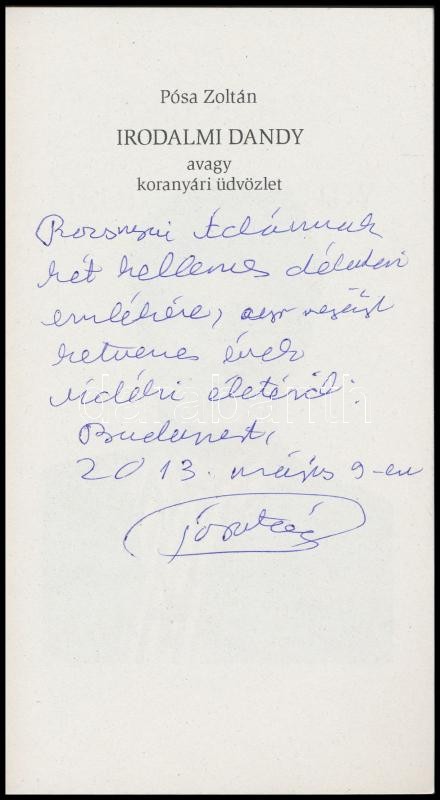 Pósa Zoltán
IRODALMI DANDY
avagy
koranyári üdvözlet
Rozsnyai Ádámnak
két kellemes délutáni
emlékére, egy
hetvenes évek
vidéki életéről:
Budapest,
2013. május 9-én